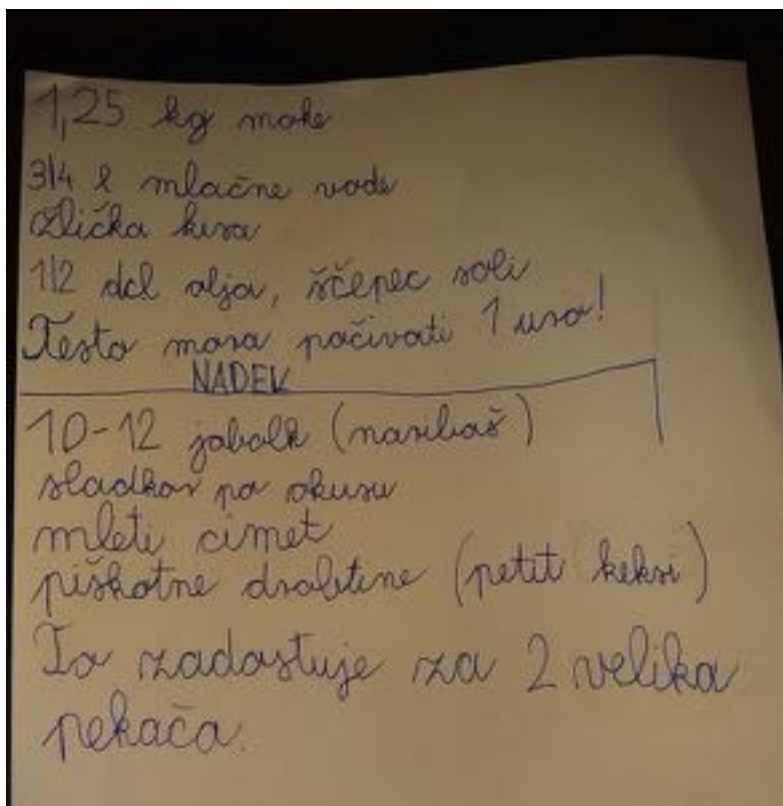 1,25 kg moke
3/4 l mlačne vode
žlička kisa
1/2 dcl olja, ščepec soli
Testo mora počivati 1 uro!
NADEV
10-12 jabolk (naribaš)
sladkor po okusu
mleti cimet
piškotne drobtine (petit keksi)
To zadostuje za 2 velika
pekača.